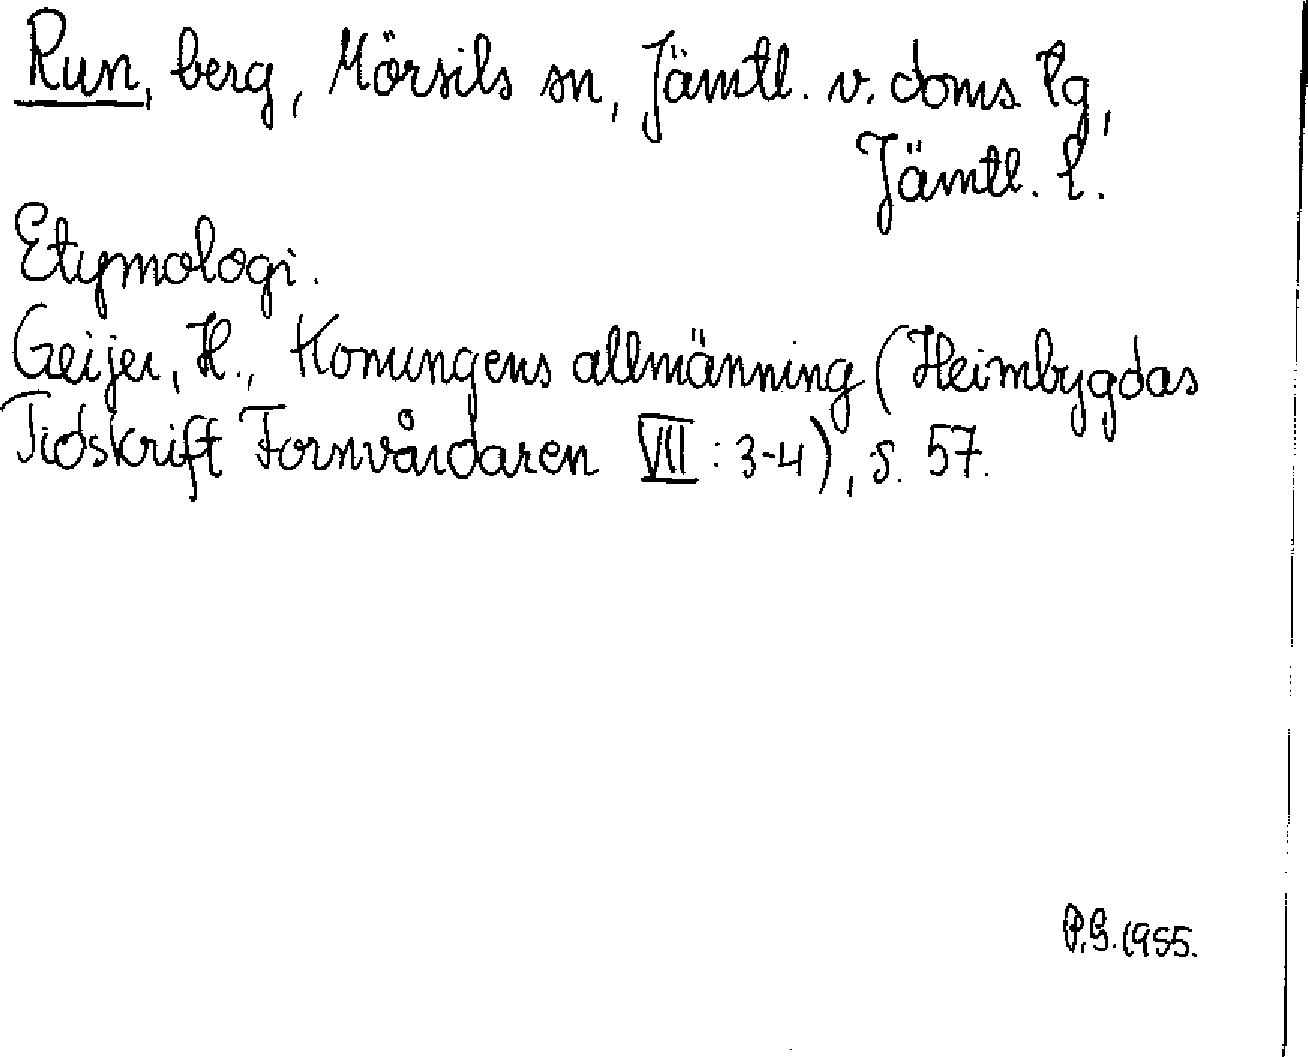 Run, berg, Mörsils sn, Jämtl. v. doms. lg,
Jämtl. l.
Etymologi.
Geijer, H., Konungens allmänning (Heimbygdas
Tidskrift Fornvårdaren VII : 3-4), s. 57.
P.G. 1955.